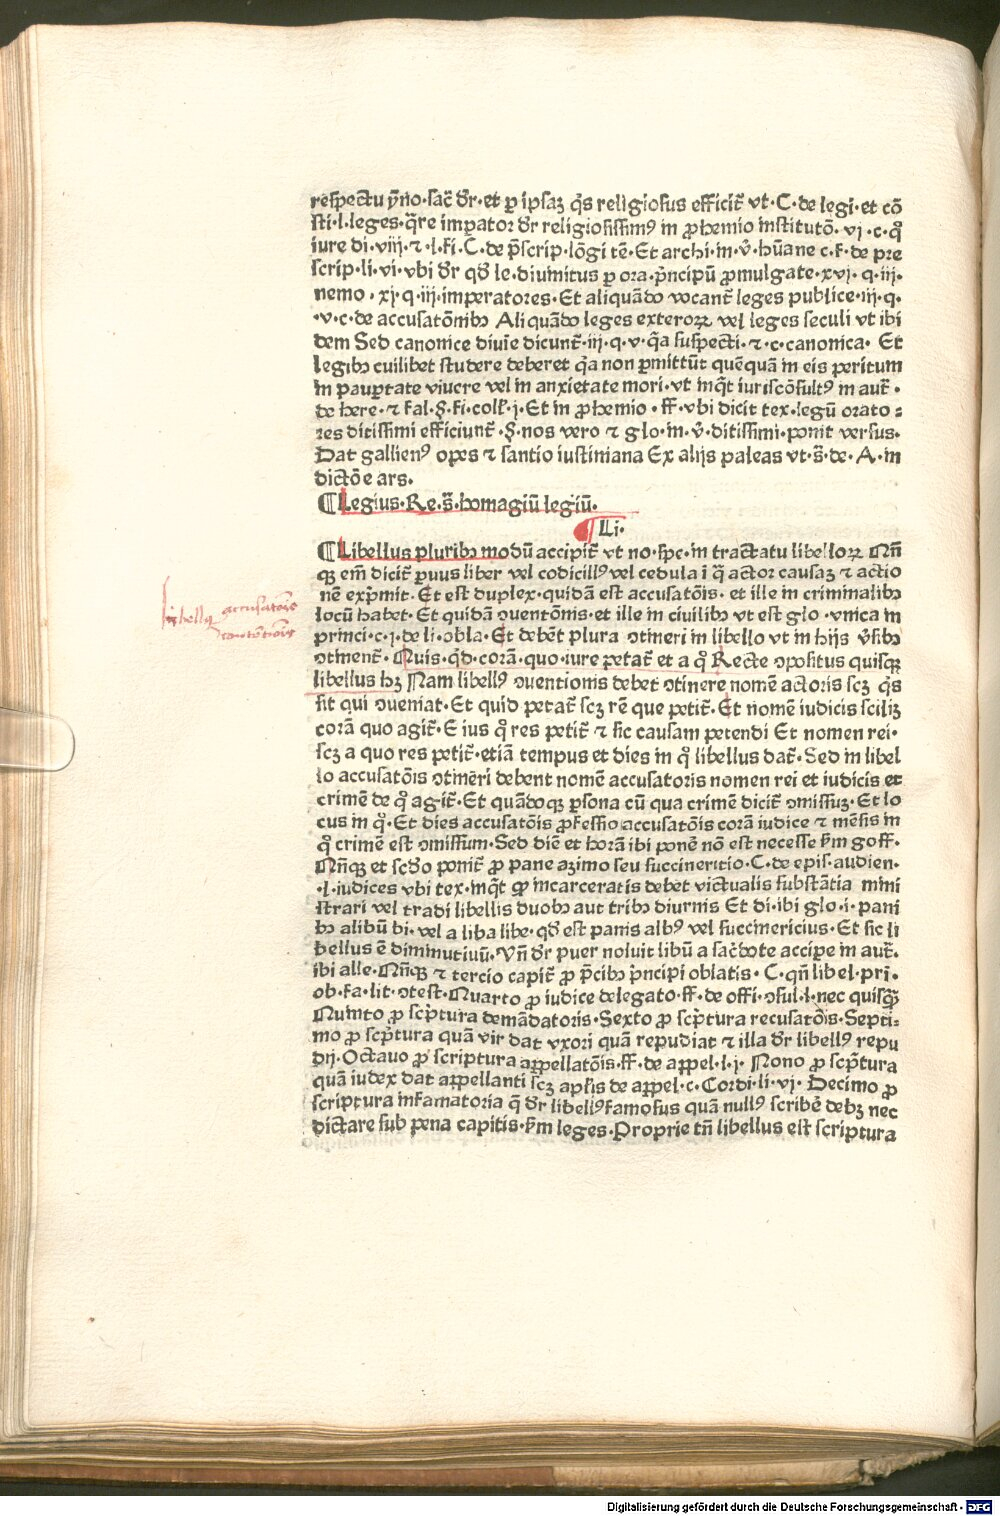 respectu ẏno·sac̄ d̄r·et ꝑ ipsaꝫ q̄s religiosus efficit̄ vt·C·de legi·et cō
sti·l·leges·q̄re imꝑator d̄r religiosissimꝰ in ꝓhemio institutō·vj·c·qͦ
iure di·viij·⁊·l·fi·C·de p̄scrip·lōgi tē·Et archi·in·v̄·hūane c·f·de pre
scrip·li·vi·vbi d̄r qd̄ le·diuinitus ꝑ ora·p̄ncipū ꝓmulgate·xvj·q·iij·
nemo·xj·q·iij·imperatores·Et aliquādo vocant̄ leges publice·iij·q·
·v·c·de accusatōnibꝫ Aliquādo leges exteroꝝ vel leges seculi vt ibi
dem Sed canonice diuīe dicunt̄·iij·q·v·q̄a suspecti·⁊·c·canonica· Et
legibꝫ cuilibet studere deberet q̄a non ꝑmittūt quēquā in eis peritum
in pauꝑtate viuere vel in anxietate mori·vt inq̄t iuriscōsultꝰ in aut̄·
de here·⁊ fal·§·fi·coll̄·j·Et in ꝓhemio·ff·vbi dicit tex·legū orato⸗
res ditissimi efficiunt̄·§·nos vero ⁊ glo·in·v̄·ditissimi·ponit versus·
Dat gallienꝰ opes ⁊ santio iustiniana Ex alijs paleas vt·s̄·de·A·in
dictōe ars·
¶Legius·Re·s̄·homagiū legiū·
¶Li·
¶Libellus pluribꝫ modū accipit̄ vt no·spc·in tractatu libelloꝝ Nn̄
qꝫ em̄ dicit̄ ꝑuus liber vel codicillꝰ vel cedula ī q̄ actor causaꝫ ⁊ actio
nē exp̄mit·Et est duplex·quidā est accusatōis·et ille in criminalibꝫ
locū habet·Et quidā ↄuentōnis·et ille in ciuilibꝫ vt est glo·vnica in
princi·c·j·de li·obla·Et debēt plura ↄtineri in libello vt in hijs v̄sibꝫ
ↄtinent̄·Quis·qd̄·corā·quo·iure petat̄ et a qͦ Recte ↄpositus quisqꝫ
libellus hꝫ Nam libellꝰ ↄuentionis debet ↄtinere nomē actoris scꝫ q̄s
sit qui ↄueniat·Et quid petat̄ scꝫ rē que petit̄·Et nomē iudicis scilꝫ
corā quo agit̄·E ius qͦ res petit̄ ⁊ sic causam petendi Et nomen rei·
scꝫ a quo res petit̄·etiā tempus et dies in qͦ libellus dat̄·Sed in libel
lo accusatōis ↄtinēri debent nomē accusatoris nomen rei et iudicis et
crimē de qͦ agit̄·Et quādoqꝫ ꝑsona cū qua crimē dicit̄ ↄmissuꝫ·Et lo
cus in qͦ·Et dies accusatōis ꝓfessio accusatōis corā iudice ⁊ mēsis in
qͦ crimē est ↄmissum·Sed diē et horā ibi ponē nō est necesse f̄m goff·
Nn̄qꝫ et scd̄o ponit̄ ꝓ pane azimo seu succineritio·C·de epis·audien·
·l·iudices vbi tex·inq̄t ꝙ incarceratis debet victualis substātia mini
strari vel tradi libellis duobꝫ aut tribꝫ diurnis Et di·ibi glo·i·pani
bꝫ alibū bi·vel a liba libe·qd̄ est panis albꝰ vel succinericius·Et sic li
bellus ē diminutiuū·Vn̄ d̄r puer noluit libū a sac̄dote acciꝑe in aut̄·
ibi alle·Nn̄qꝫ ⁊ tercio capit̄ ꝓ p̄cibꝫ p̄ncipi oblatis·C·qn̄ libel·pri·
ob·fa·lit·ↄtest·Quarto ꝓ iudice delegato·ff·de offi·ↄsul·l·nec quisq̄
Quinto ꝓ sc̄ptura demādatoris·Sexto ꝓ sc̄ptura recusatōis·Septi⸗
mo ꝓ sc̄ptura quā vir dat vxori quā repudiat ⁊ illa d̄r libellꝰ repu
dij·Octauo ꝓ scriptura appellatōis·ff·de appel·l·j· Nono ꝓ sc̄ptura
quā iudex dat appellanti scꝫ apl̄is de appel·c·Cordi·li·vj· Decimo ꝓ
scriptura infamatoria q̄ d̄r libellꝰ famosus quā nullꝰ scribē debꝫ nec
dictare sub pena capitis·f̄m leges·Proprie tn̄ libellus est scriptura
accusatōnis
Digitalisierung gefördert durch die Deutsche Forschungsgemeinschaft - DFG